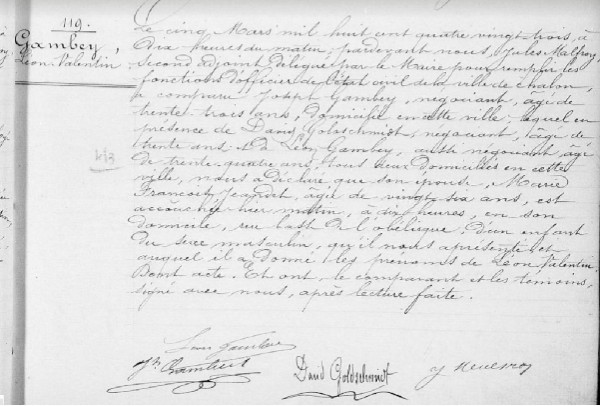 119.
Gambey,
Léon-Valentin
Le cinq Mars mil huit cent quatre vingt-trois, à
dix heures du matin, pardevant nous, Jules Malfroy,
second adjoint délégué par le Maire pour remplir les
fonctions d'officier de l'état civil de la ville de Chalon,
a comparu Joseph Gambey, négociant, âgé de
trente-trois ans, domicilié en cette ville, lequel en
présence de David Goldschmidt, négociant, âgé de
trente ans & de Léon Gambey, aussi négociant, âgé
de trente-quatre ans, tous deux domiciliés en cette
ville, nous a déclaré que son épouse, Marie
Françoise, âgée de vingt-six ans, est
accouchée hier matin, à dix heures, en son
domicile, rue basse de l'obélisque, d'un enfant
du sexe masculin, qu'il nous a présenté et
auquel il a donné les prénoms de Léon Valentin.
Dont acte. Et ont, le comparant et les témoins,
signé avec nous, après lecture faite.
Léon Gambey
David Goldschmidt